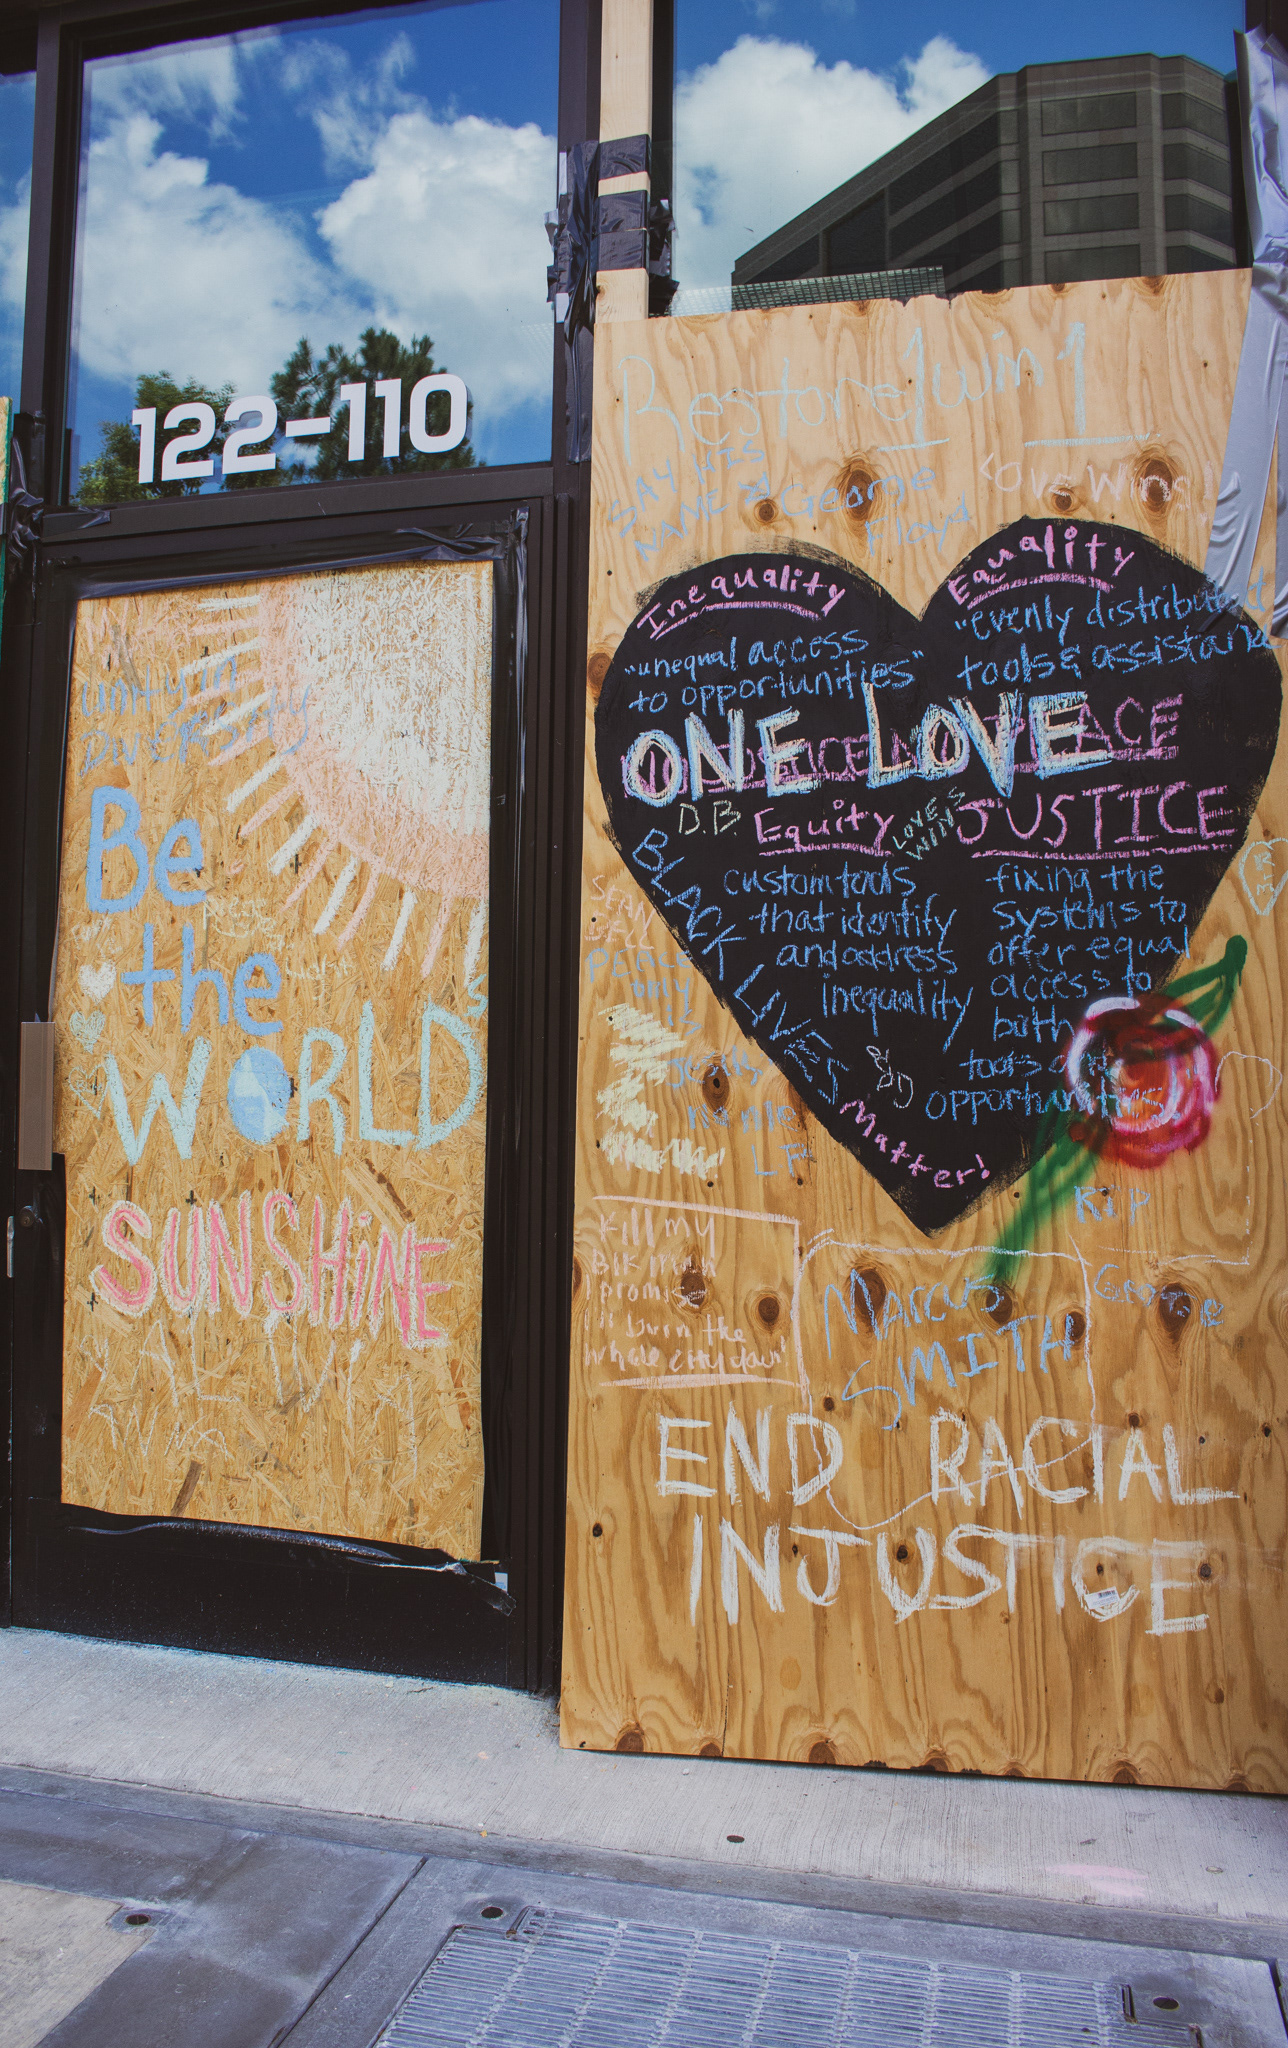 122-110
UNITY IN
DIVERSITY
Be
the
WORLD'S
SUNSHINE
Restore 1 win 1
SAY HIS
NAME
George
Floyd
LOVE Wins!
Inequality
"unequal access
to opportunities"
Equality
"evenly distributed
tools & assistance
ONE LOVE
PEACE
D.B.
Equity
LOVE
WINS
JUSTICE
custom tools
that identify
and address
inequality
fixing the
systems to
offer equal
access to
both
tools and
opportunities.
BLACK LIVES
Matter!
SEAN
PEACE
only
RIP
George
Kill my
promise
burn the
whole city down!
MARCUS
SMITH
END RACIAL
INJUSTICE